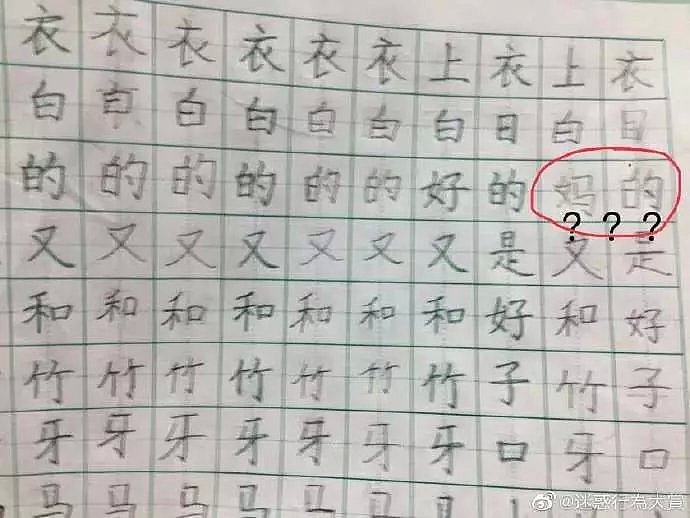 衣衣衣衣衣衣上衣上衣
白白白白白白白日白日
的的的的的的好的妈的
? ? ?
又又又又又又又是又是
和和和和和和和好和好
竹竹竹竹竹竹竹子竹子
牙牙牙牙牙牙牙口牙口
马马马马马马马
@迷惑行為大賞